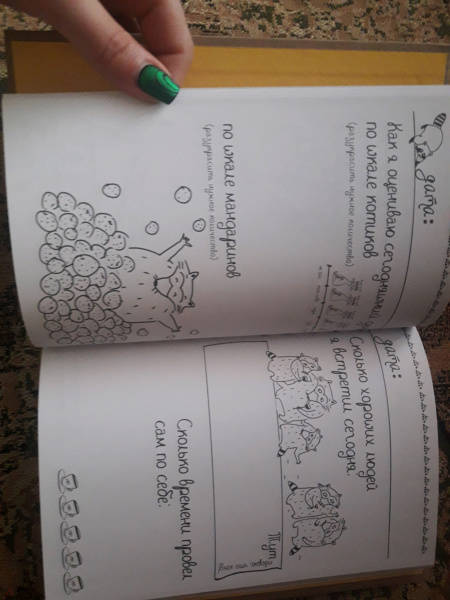 дата:
Как я оцениваю сегодняшний
по шкале котиков
(разукрасить нужное количество)
по шкале мандаринов
(разукрасить нужное количество)
дата:
Сколько хороших людей
я встретил сегодня:
Тут
Сколько времени провел
сам по себе: